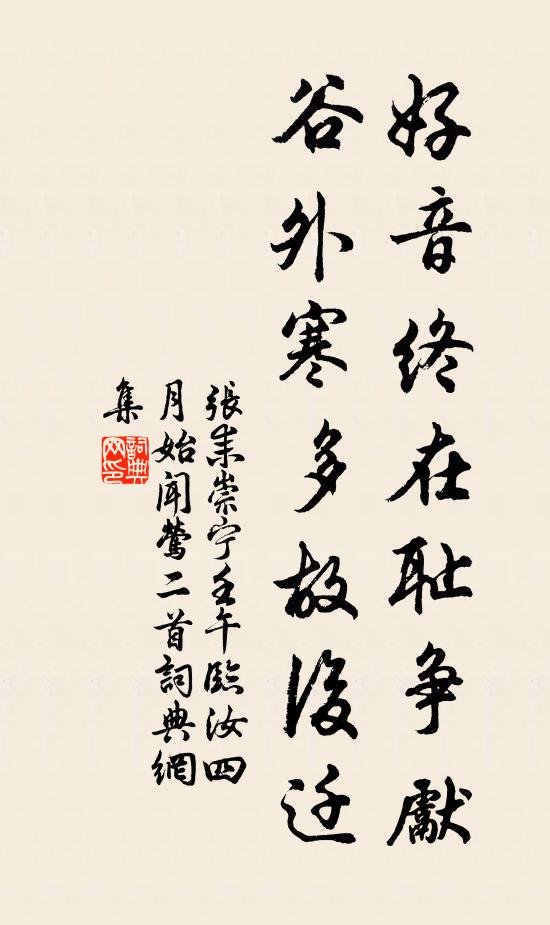 好音终在耻争獻
谷外寒多故後迁
張耒崇宁壬午臨汝四
月始闻鶯二首詞典網
集
詞典
网印